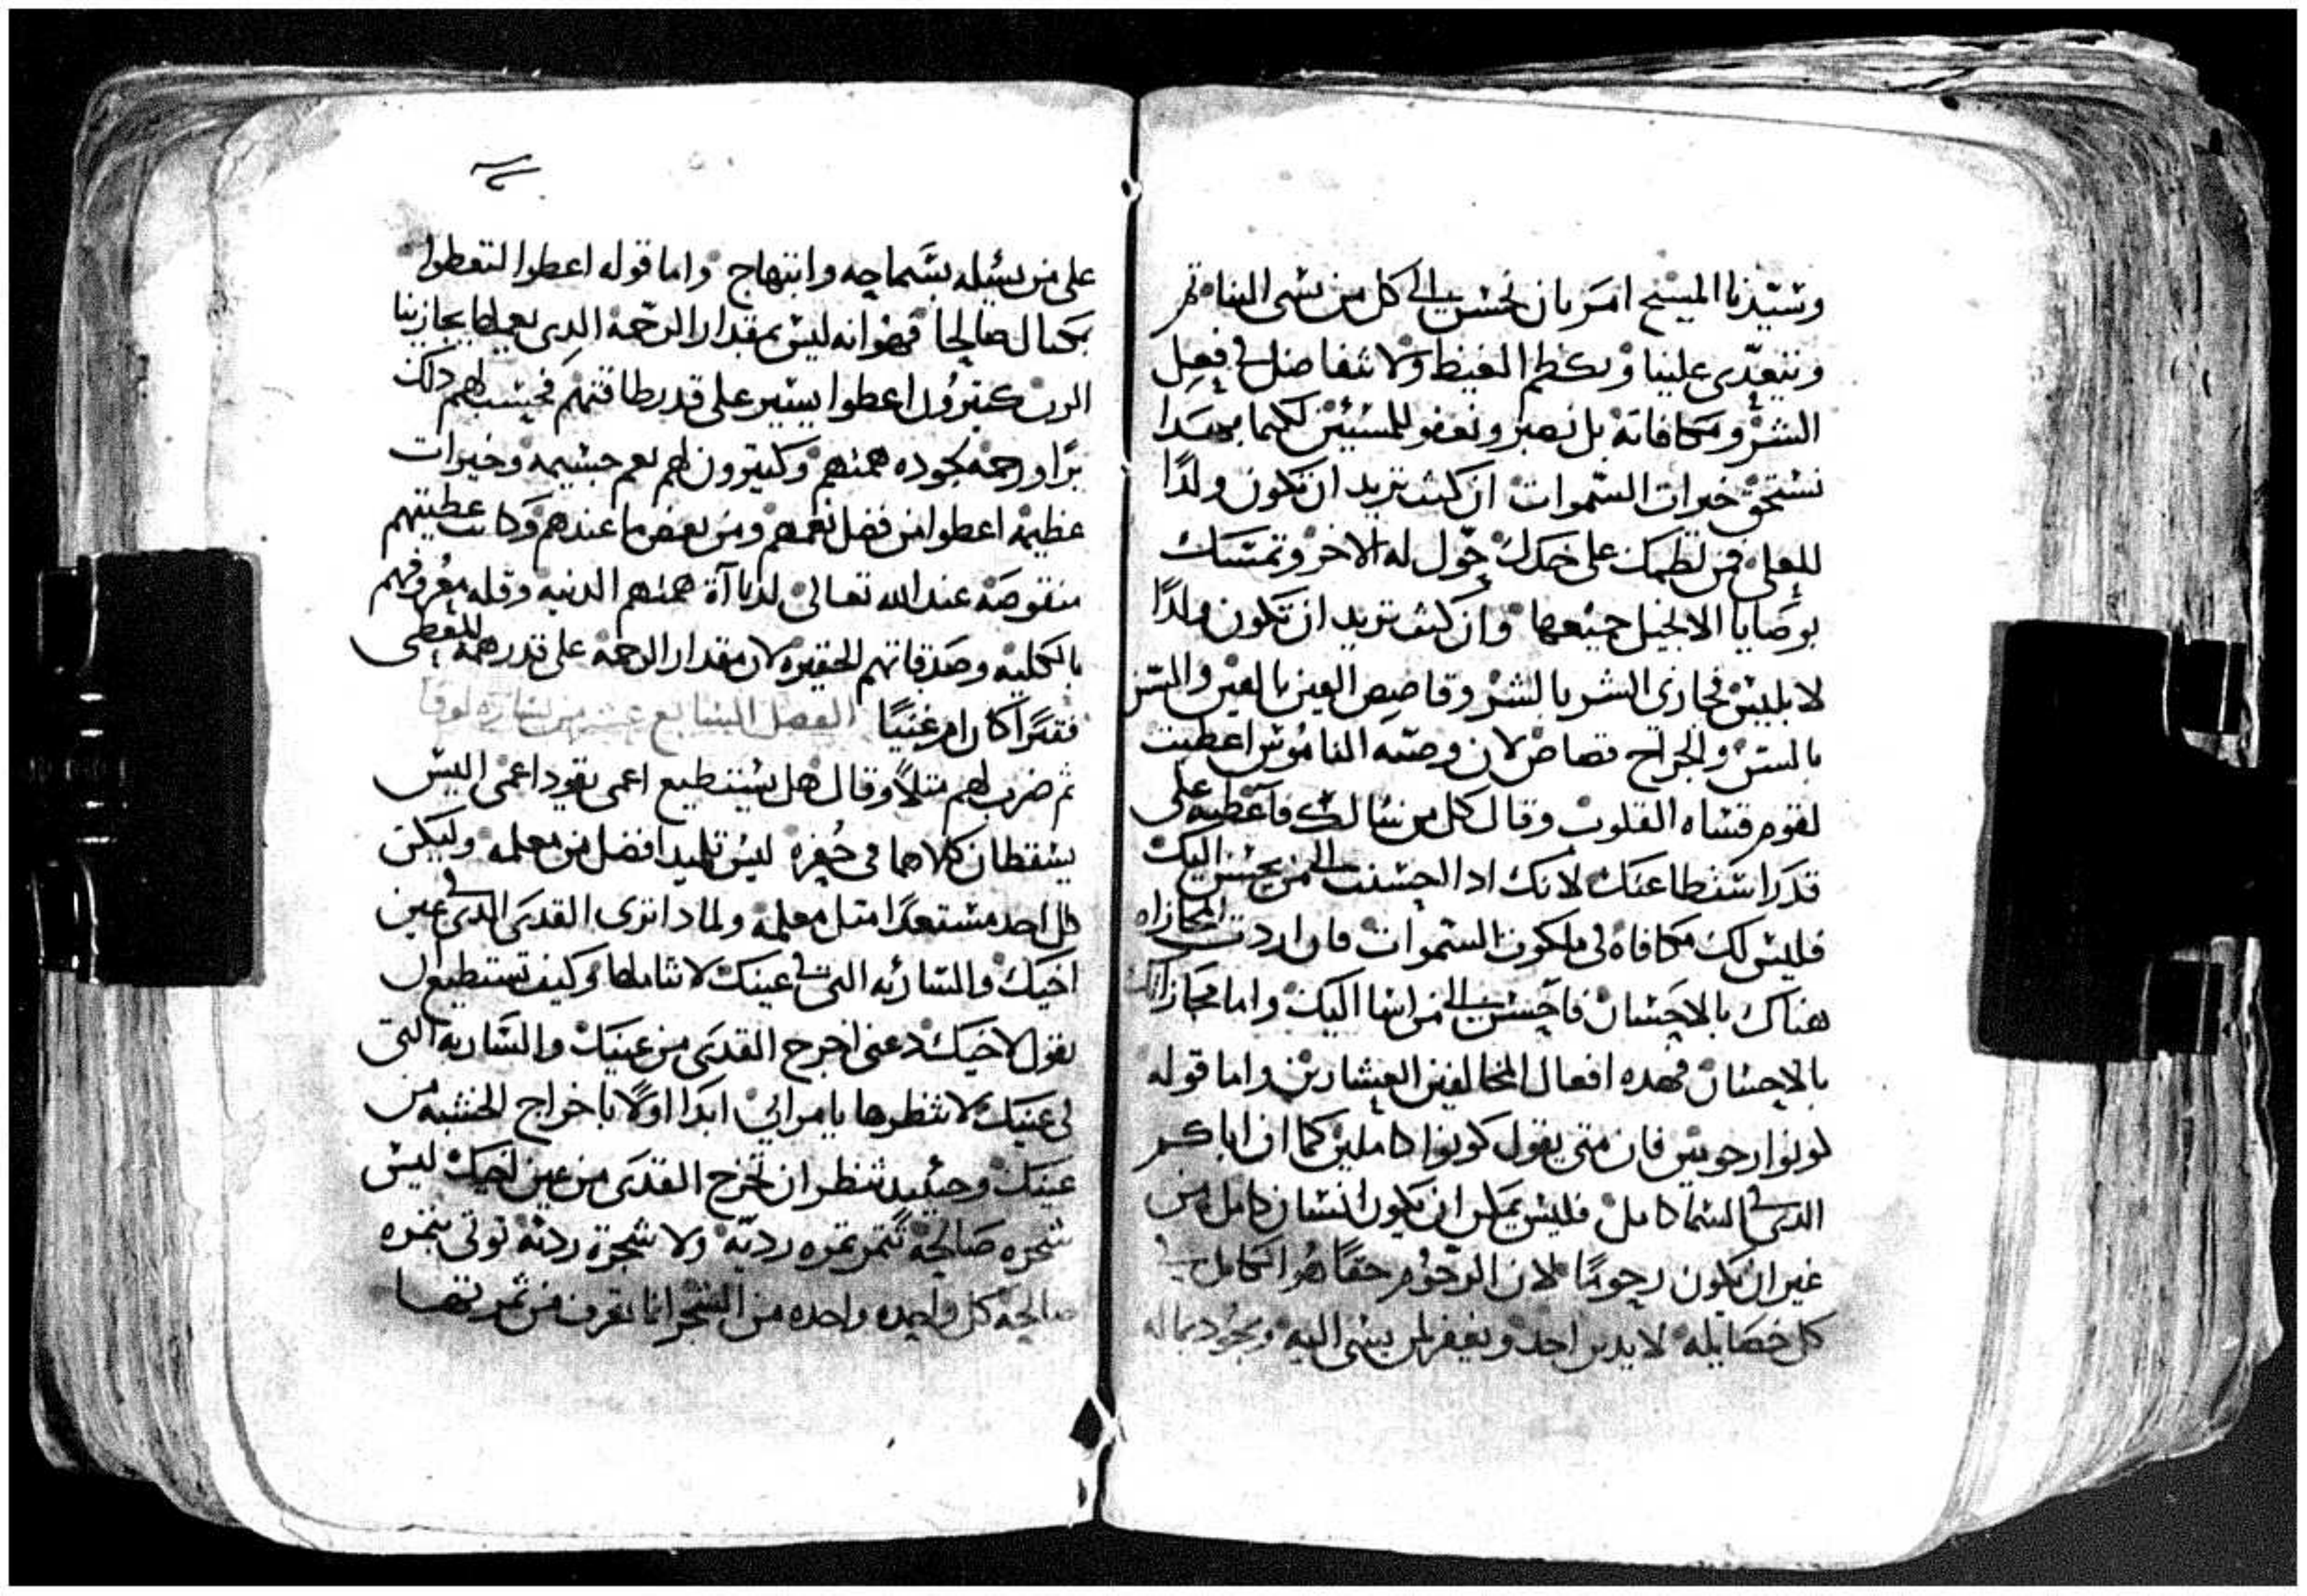 وسيدنا المسيح امر بان نحسن الي كل من يسي الينا
ويتعدي علينا ونكظم الغيظ ولا نتفاضل في فعل
الشر ومكافاته بل نصبر ونعفو للمسيين لكيما بهدا
نستحق خيرات السموات ان كنت تريد ان تكون ولدًا
للعلي فمن لطمك على خدك حول له الاخر وتمسك
بوصايا الانجيل جميعها وان كنت تريد ان تكون ولدًا
لابليس فجازي الشر بالشر وقاصص العين بالعين والسن
بالسن والجراح قصاص لان وصيه الناموس اعطيت
لقوم قساه القلوب وقال كل من سالك فاعطيه على
قدر استطاعتك لانك ادا احسنت الى من يحسن اليك
فليس لك مكافاه في ملكوت السموات فان اردت المجازاه
هناك بالاحسان فاحسن الى من اسا اليك واما مجازاتك
بالاحسان فهده افعال المخالفين العشارين واما قوله
كونوا رحومين فان متى يقول كونوا كاملين كما ان اباكم
الدي في السما كامل فليس يمكن ان يكون انسان كامل من
غير ان يكون رحومًا لان الرحوم حقًا هو الكامل في
كل خصايله لا يدين احد ويغفر لمن يسى اليه ويجود بماله
على من يسيله بسماحه وابتهاج واما قوله اعطوا لتعطوا
بمكيال صالحا فهو انه ليس بمقدار الرحمة الدي يعطا يجازينا
الرب كتيرون اعطوا يسير على قدر طاقتهم فحسب لهم دلك
برًا ورحمة بجوده هممهم وكتيرون لهم نعم جسيمه وخيرات
عظيمة اعطوا من فضل نعمهم ومن بعض ما عندهم وكانت عطيتهم
منقوصة عند الله تعالى لدناآة هممهم الدنيه وقله معروفهم
بالكليه وصدقاتهم الحقيره لان مقدار الرحمة على قدر همة المعطى
فقيرًا كان ام غنيًا الفصل السابع عشر من بشارة لوقا
ثم ضرب لهم متلًا وقال هل يستطيع اعمى يقود اعمى اليس
يسقطان كلاهما في حفرة ليس تلميد افضل من معلمه وليكن
كل احد مستعدًا متل معلمه ولمادا ترى القدى الدي في عين
اخيك والساريه التى في عينك لا تتاملها وكيف تستطيع ان
تقول لاخيك دعنى اخرج القدى من عينك والساريه التى
في عينك لا تنظرها يا مرايي ابدا اولًا باخراج الخشبه من
عينك وحينيد تنظر ان تخرج القدى من عين اخيك ليس
شجره صالحة تتمر تمره رديه ولا شجرة ردية توتى بتمره
صالحة كل واحده واحده من الشجر انما تعرف من تمرتها